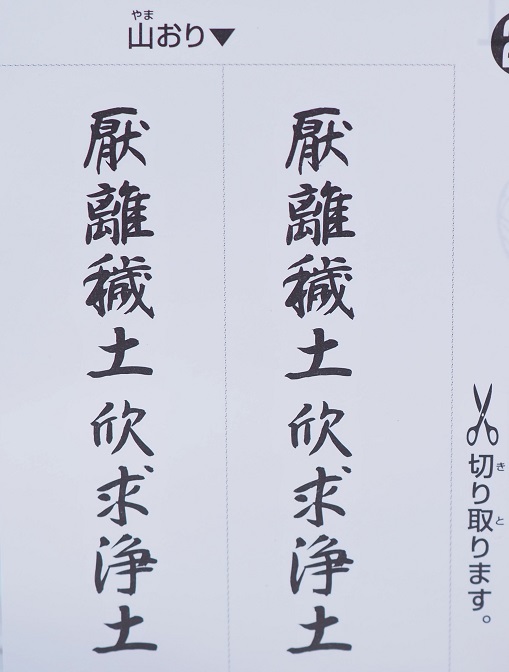 山おり▼
厭離穢土欣求浄土
厭離穢土欣求浄土
切り取ります。